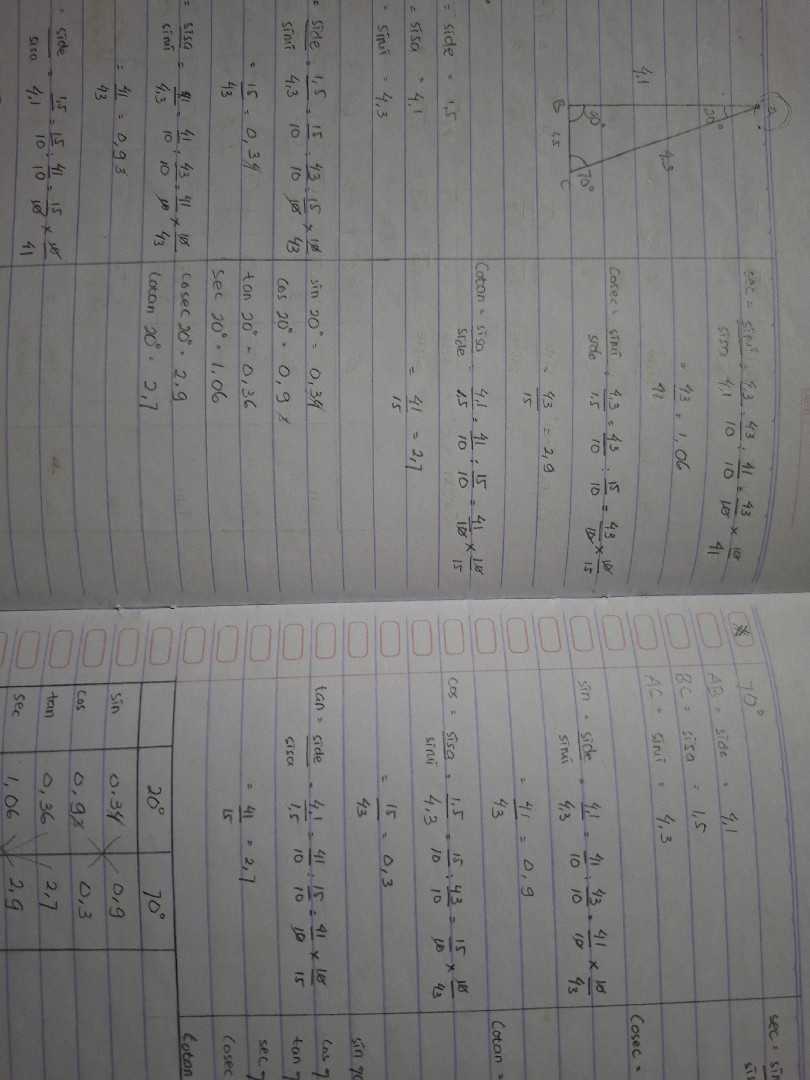 A
20°
4,1
4,3
B
90°
70°
C
1,5
= side = 1,5
= sisa = 4,1
= simi = 4,3
= side/simi = 1,5/4,3 = 15/10 : 43/10 = 15/10 × 10/43
= 15/43 = 0,34
= sisa/simi = 41/4,3 = 41/10 : 43/10 = 41/10 × 10/43
= 41/43 = 0,93
side/sisa = 1,5/4,1 = 15/10 : 41/10 = 15/10 × 10/41
sec = simi/sisa = 4,3/4,1 = 43/10 : 41/10 = 43/10 × 10/41
= 43/41 = 1,06
Cosec = simi/side = 4,3/1,5 = 43/10 : 15/10 = 43/10 × 10/15
= 43/15 = 2,9
Cotan = sisa/side = 4,1/1,5 = 41/10 : 15/10 = 41/10 × 10/15
= 41/15 = 2,7
sin 20° = 0,34
cos 20° = 0,9
tan 20° = 0,36
sec 20° = 1,06
cosec 20° = 2,9
cotan 20° = 2,7
70°
AB = side = 4,1
BC = sisa = 1,5
AC = simi = 4,3
sin = side/simi = 4,1/4,3 = 41/10 : 43/10 = 41/10 × 10/43
= 41/43 = 0,9
cos = sisa/simi = 1,5/4,3 = 15/10 : 43/10 = 15/10 × 10/43
= 15/43 = 0,3
tan = side/sisa = 4,1/1,5 = 41/10 : 15/10 = 41/10 × 10/15
= 41/15 = 2,7
20° 70°
sin 0,34 0,9
cos 0,9 0,3
tan 0,36 2,7
sec 1,06 2,9
sec =
Cosec =
Cotan =
sin
cos
tan
sec
Cosec
Cotan